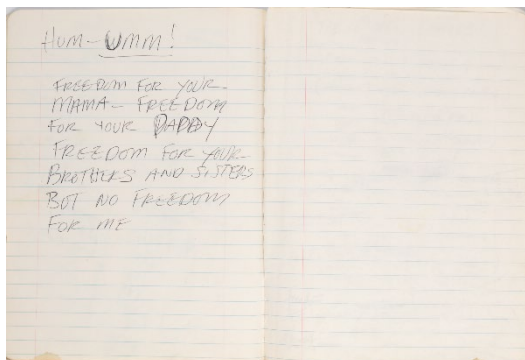 HUM-UMM!
FREEDOM FOR YOUR-
MAMA- FREEDOM
FOR YOUR DADDY
FREEDOM FOR YOUR-
BROTHERS AND SISTERS
BUT NO FREEDOM
FOR ME